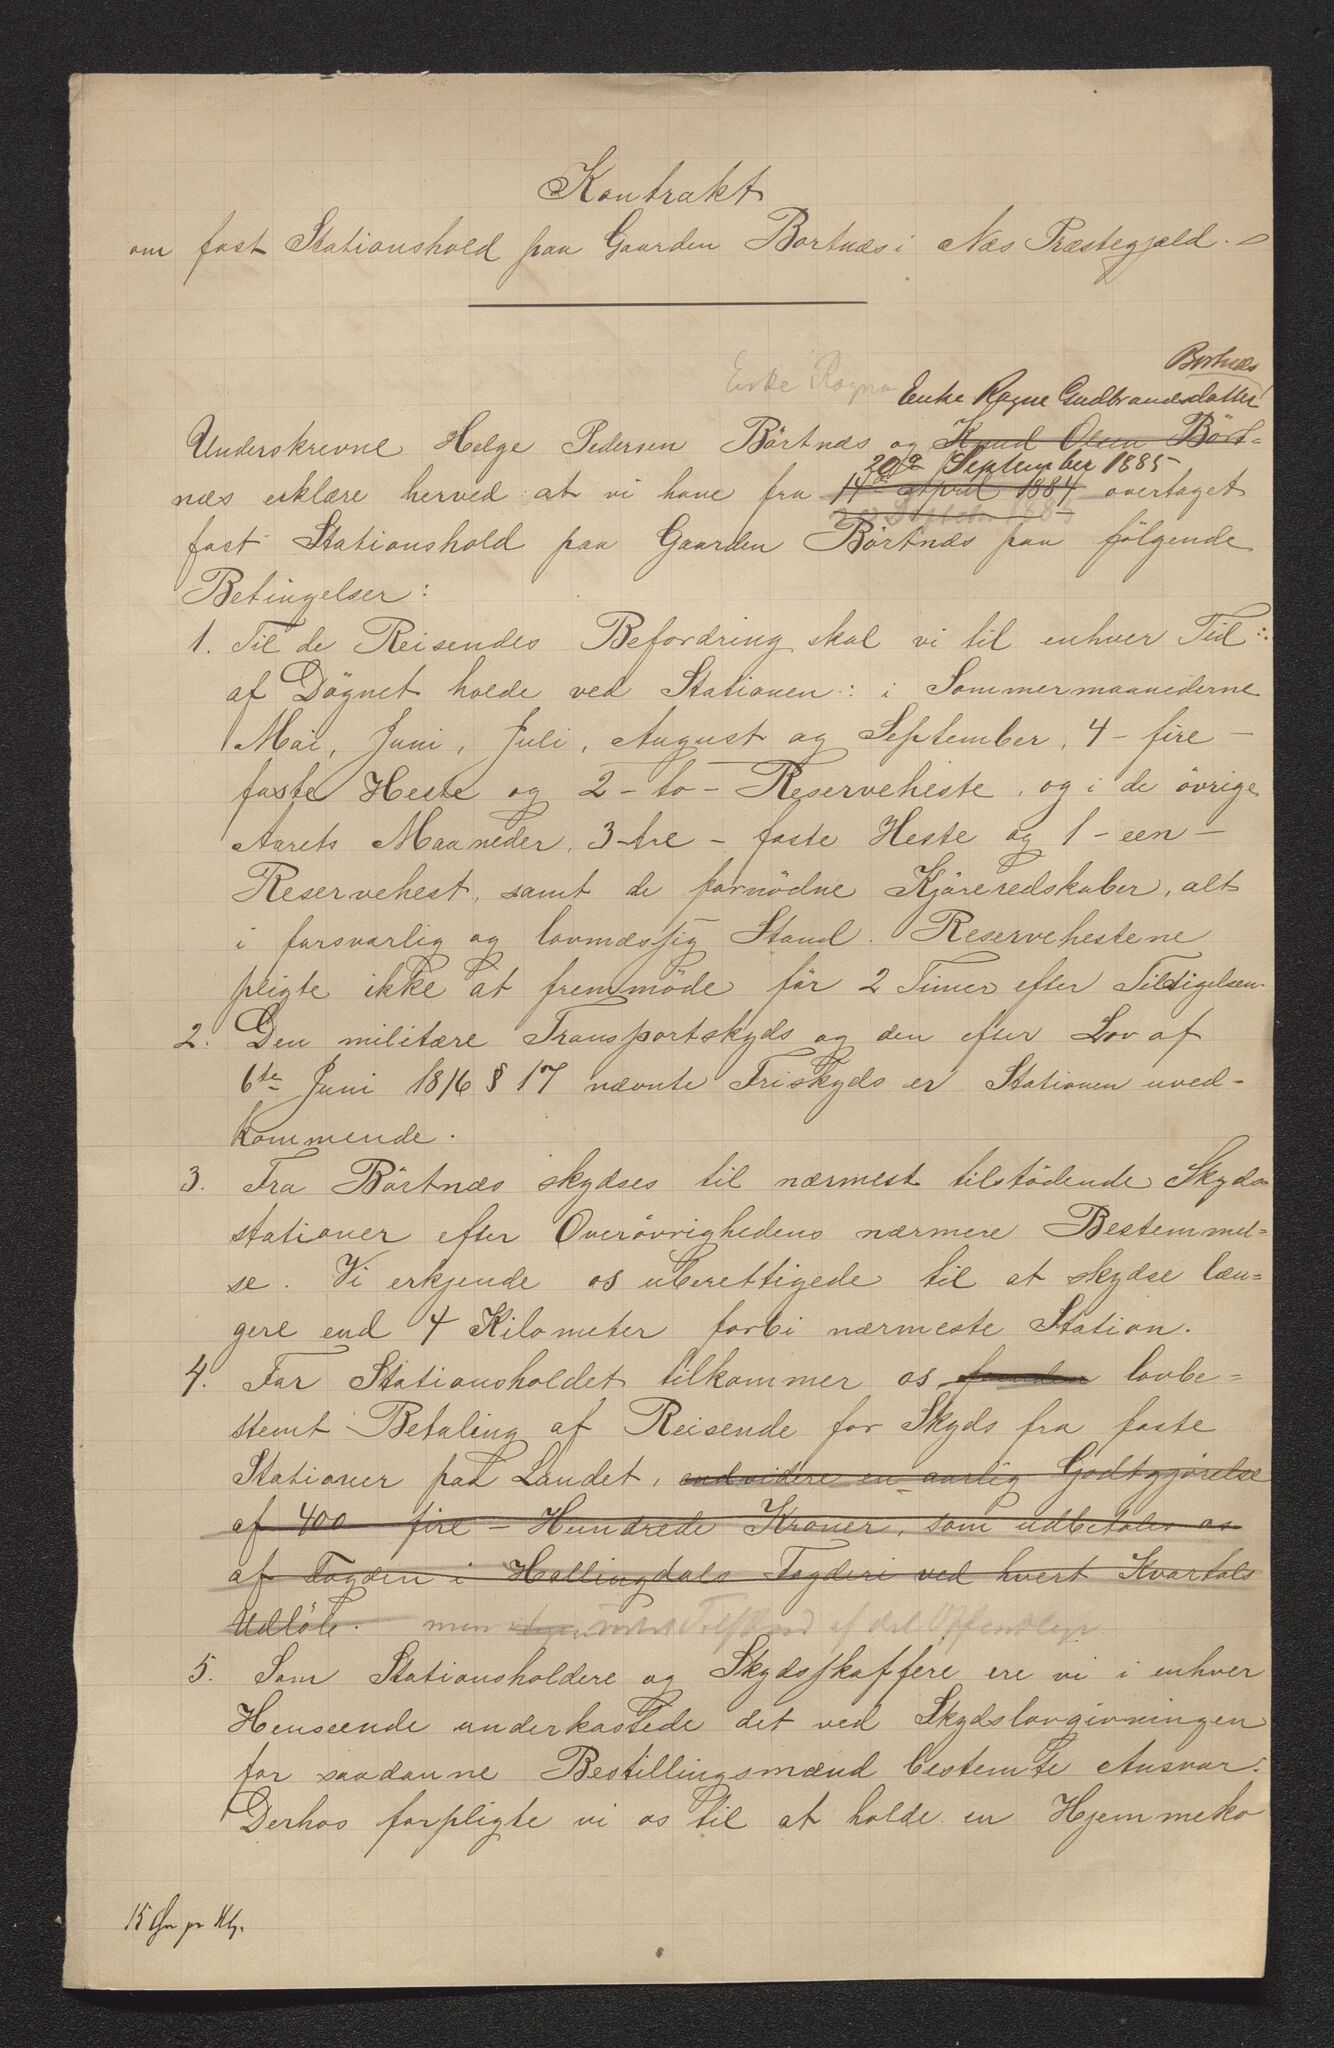 Kontrakt
om fast Stationshold paa Gaarden Bortnæs i Næs Præstegjæld.
Bortnæs
Enke Ragna Enke Ragne Gudbrandsdatter
Underskrevne Helge Pedersen Børtnæs og Knud Olsen Bört-
20de September 1885
næs erklære herved at vi have fra 14de April 1884 overtaget
September 1885
fast Stationshold paa Gaarden Börtnæs paa følgende
Betingelser:
1. Til de Reisendes Befordring skal vi til enhver Tid
af Døgnet holde ved Stationen: i Sommermaanederne
Mai, Juni, Juli, August og September, 4 - fire -
faste Heste og 2 - to - Reserveheste, og i de övrige
Aarets Maaneder, 3 - tre - faste Heste og 1 - een -
Reservehest, samt de fornödne Kjöreredskaber, alt
i forsvarlig og lovmæssig Stand. Reservehestene
pligte ikke at fremmöde för 2 Timer efter Tilsigelsen.
2. Den militære Transportskyds og den efter Lov af
6te Juni 1816 § 17 nævnte Friskyds er Stationen uved-
kommende.
3. Fra Börtnæs skydses til nærmest tilstödende Skyds-
stationer efter Overövrighedens nærmere Bestemmel-
se. Vi erkjende os uberettigede til at skydse læn-
gere end 4 Kilometer forbi nærmeste Station.
4. For Stationsholdet tilkommer os foruden lovbe-
stemt Betaling af Reisende for Skyds fra faste
Stationer paa Landet, endvidere en aarlig Godtgjörelse
af 400 fire - Hundrede Kroner, som udbetales os
af Fogden i Hallingdals Fogderi ved hvert Kvartals
Udlöb. men Tilskud af det Offentlige
5. Som Stationsholdere og Skydsskaffere ere vi i enhver
Henseende underkastede det ved Skydslovgivningen
for saadanne Bestillingsmænd bestemte Ansvar.
Derhos forpligte vi os til at holde en Hjemmeko
15 Øre pr Klg.